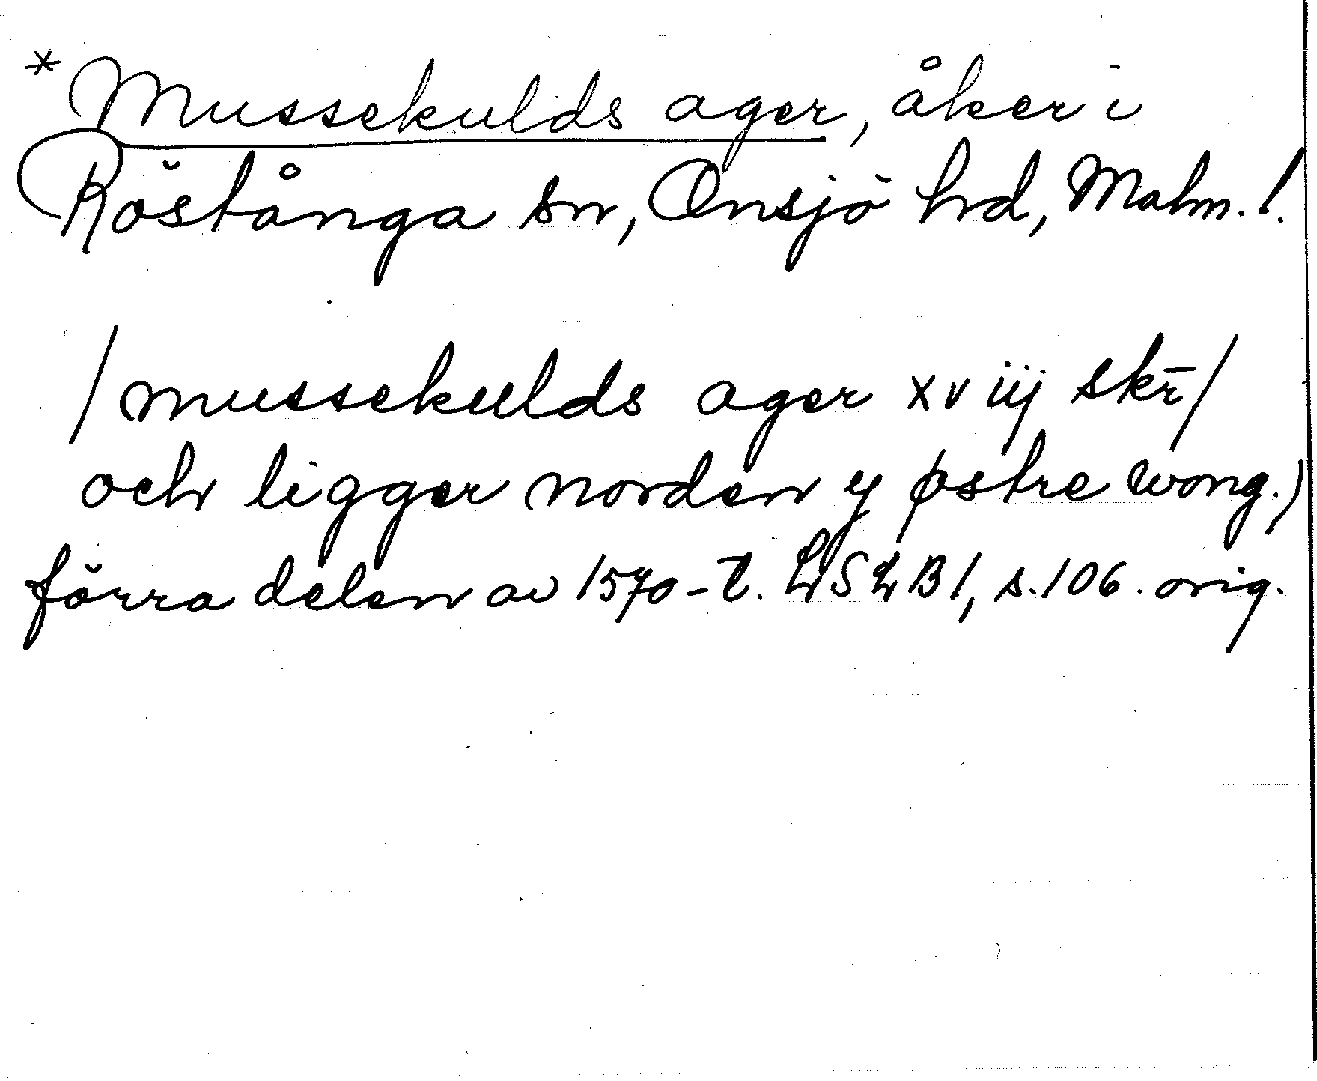 *Mussekulds ager, åker i
Röstånga sn, Onsjö hd, Malm. l.
/mussekulds ager xviij skr/
och ligger norden y østre wong.)
förra delen av 1570-t. LSLB1, s.106. orig.